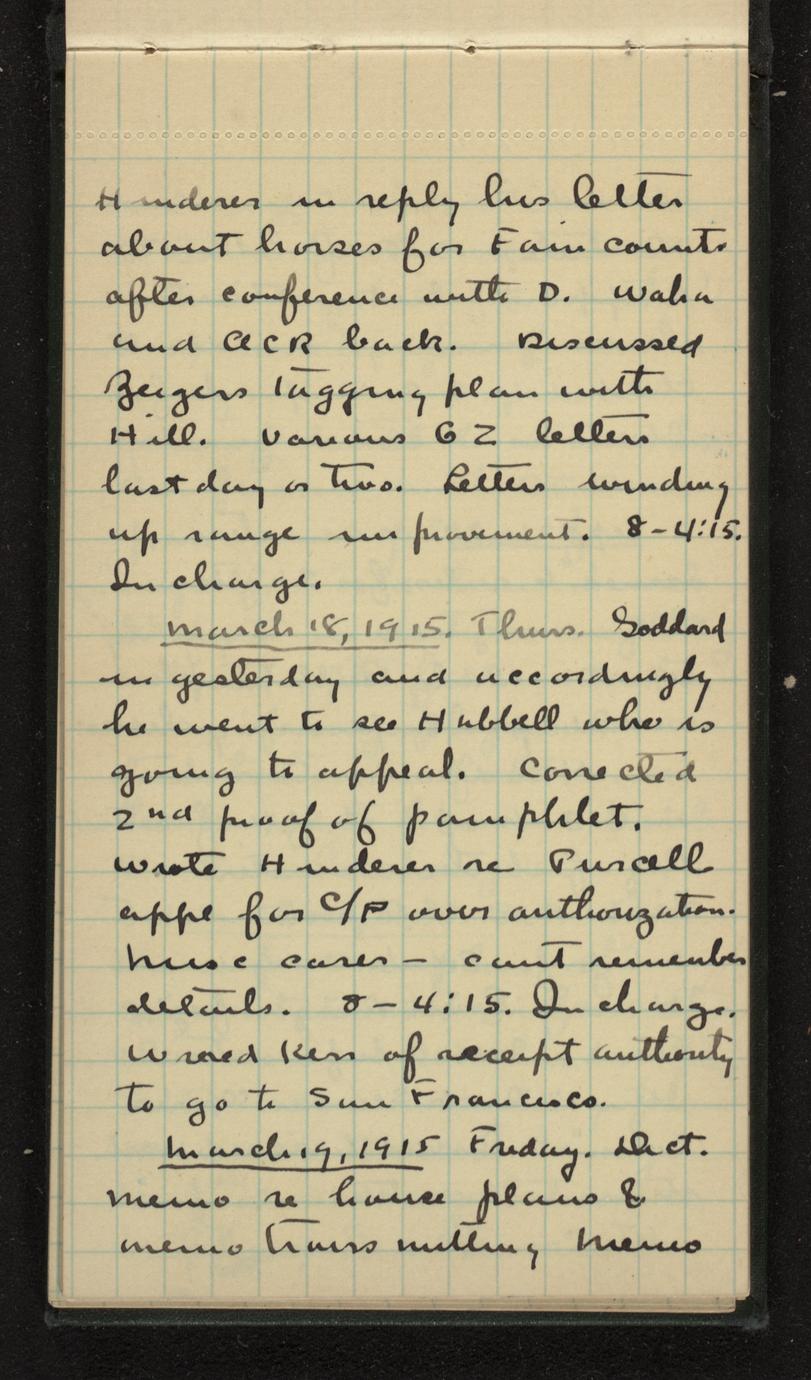 Hinderer in reply his letter
about horses for Fain counts
after conference with D. Waha
and ACR back. Discussed
Zeigers Tagging plan with
Hill. Various GZ letters
last day or two. Letters winding
up range improvement. 8-4:15.
In charge.
March 18, 1915. Thurs. Goddard
in yesterday and accordingly
he went to see Hubbell who is
going to appeal. Corrected
2nd proof of pamphlet.
Wrote Hinderer re Purcell
appl for C/P over authorization.
Misc cases - cant remember
details. 8-4:15. In charge.
Wired Kerr of receipt authority
to go to San Francisco.
March 19, 1915 Friday. Dict.
memo re house plans &
memo transmitting memo